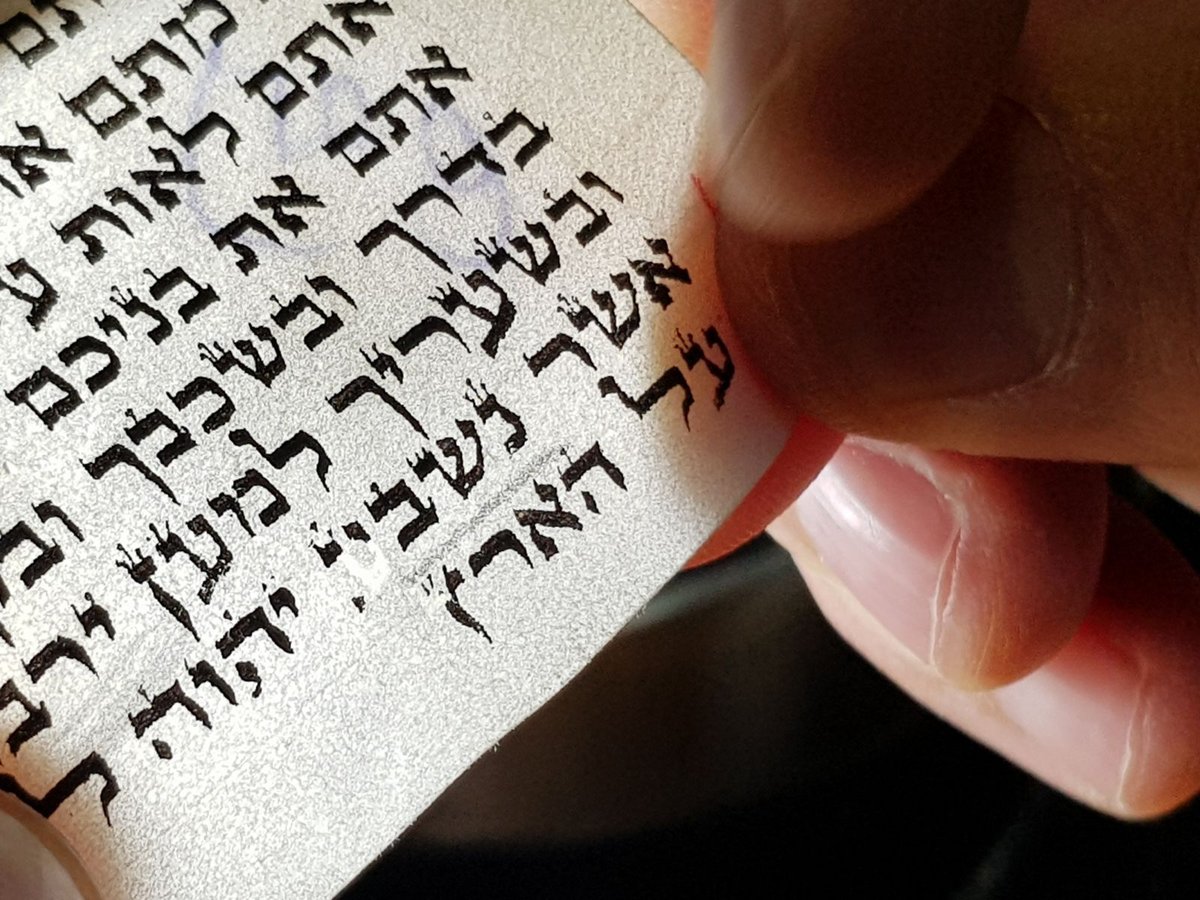 תם
מתם את
אתם לאות ע
אתם את בניכם
בדרך ובשכבך ובק
ובשעריך למען ירב
אשר נשבע יהוה ל
על הארץ